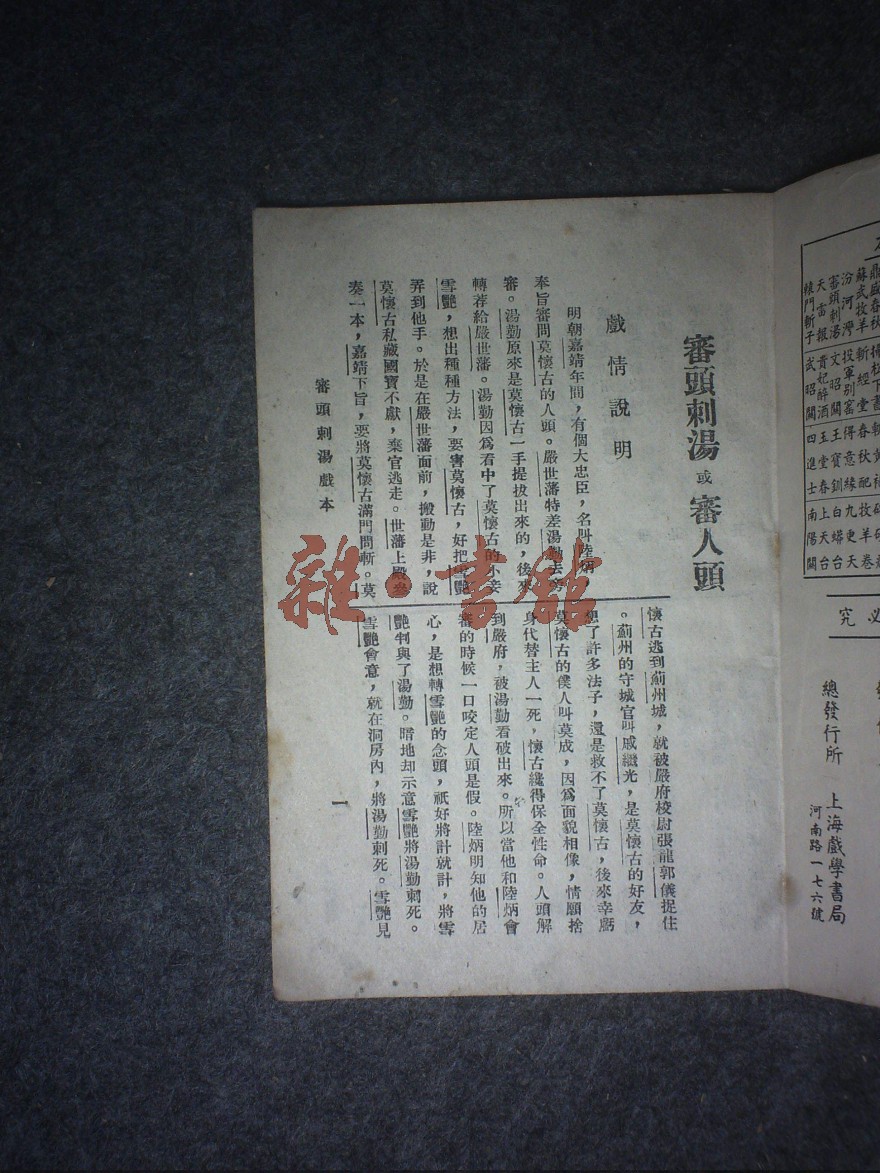 審頭刺湯 或 審人頭
戲情說明
明朝嘉靖年間，有個大忠臣，名叫陸炳
奉旨審問莫懷古的人頭。嚴世藩特差湯勤去旁
審。湯勤原來是莫懷古一手提拔出來的，後來
轉荐給嚴世藩。湯勤因爲看中了莫懷古的小妾
雪艷，想出種種方法，要害莫懷古，好把雪艷
弄到他手。於是在嚴世藩面前，搬動是非，說
莫懷古私藏國寶不獻，棄官逃走。世藩上殿參
奏一本，嘉靖下旨，要將莫懷古滿門問斬。莫
懷古逃到薊州城，就被嚴府校尉張龍郭儀捉住
。薊州的守城官叫戚繼光，是莫懷古的好友，
想了許多法子，還是救不了莫懷古，後來幸虧
莫懷古的僕人叫莫成，因爲面貌相像，情願捨
身代替主人一死，懷古纔得保全性命。人頭解
到嚴府，被湯勤看破出來。所以當他和陸炳會
審的時候一口咬定人頭是假。陸炳明知他的居
心，是想轉雪艷的念頭，祇好將計就計，將雪
艷判與了湯勤。暗地却示意雪艷將湯勤刺死。
雪艷會意，就在洞房內，將湯勤刺死。雪艷見
審頭刺湯戲本
一
雜·書館
鼎盛春秋
蘇武牧羊 新經堂 春秋配 牧羊卷
汾河灣 投軍別窰 得意緣 九更天
審頭刺湯 文昭關 王寶釧 白蟒台
天雷報 貴妃醉酒 玉堂春 上天台
轅門斬子 武昭關 四進士 南陽關
必究
總發行所 上海戲學書局
河南路一七六號